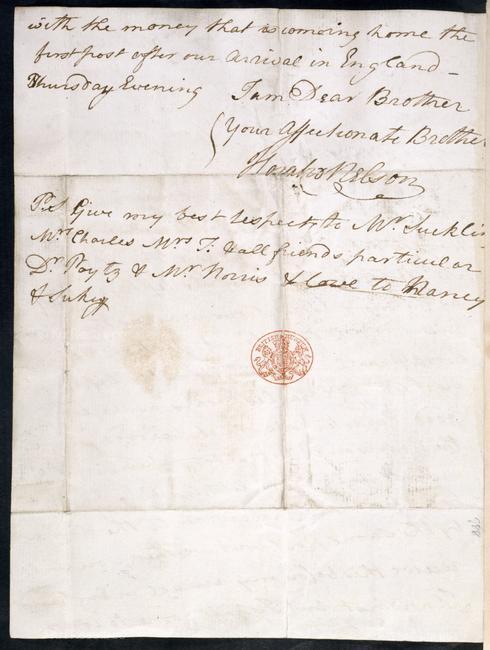 with the money that is comeing home the
first post after our arrival in England –
Thursday Evening I am Dear Brother
Your Affectionate Brother
Horatio Nelson
P.S Give my best respects to Mr. Suckling
Mrs Charles Mrs F. & all friends particular
Dr. Poytz & Mr Norris & love to Nancy
& Sukey